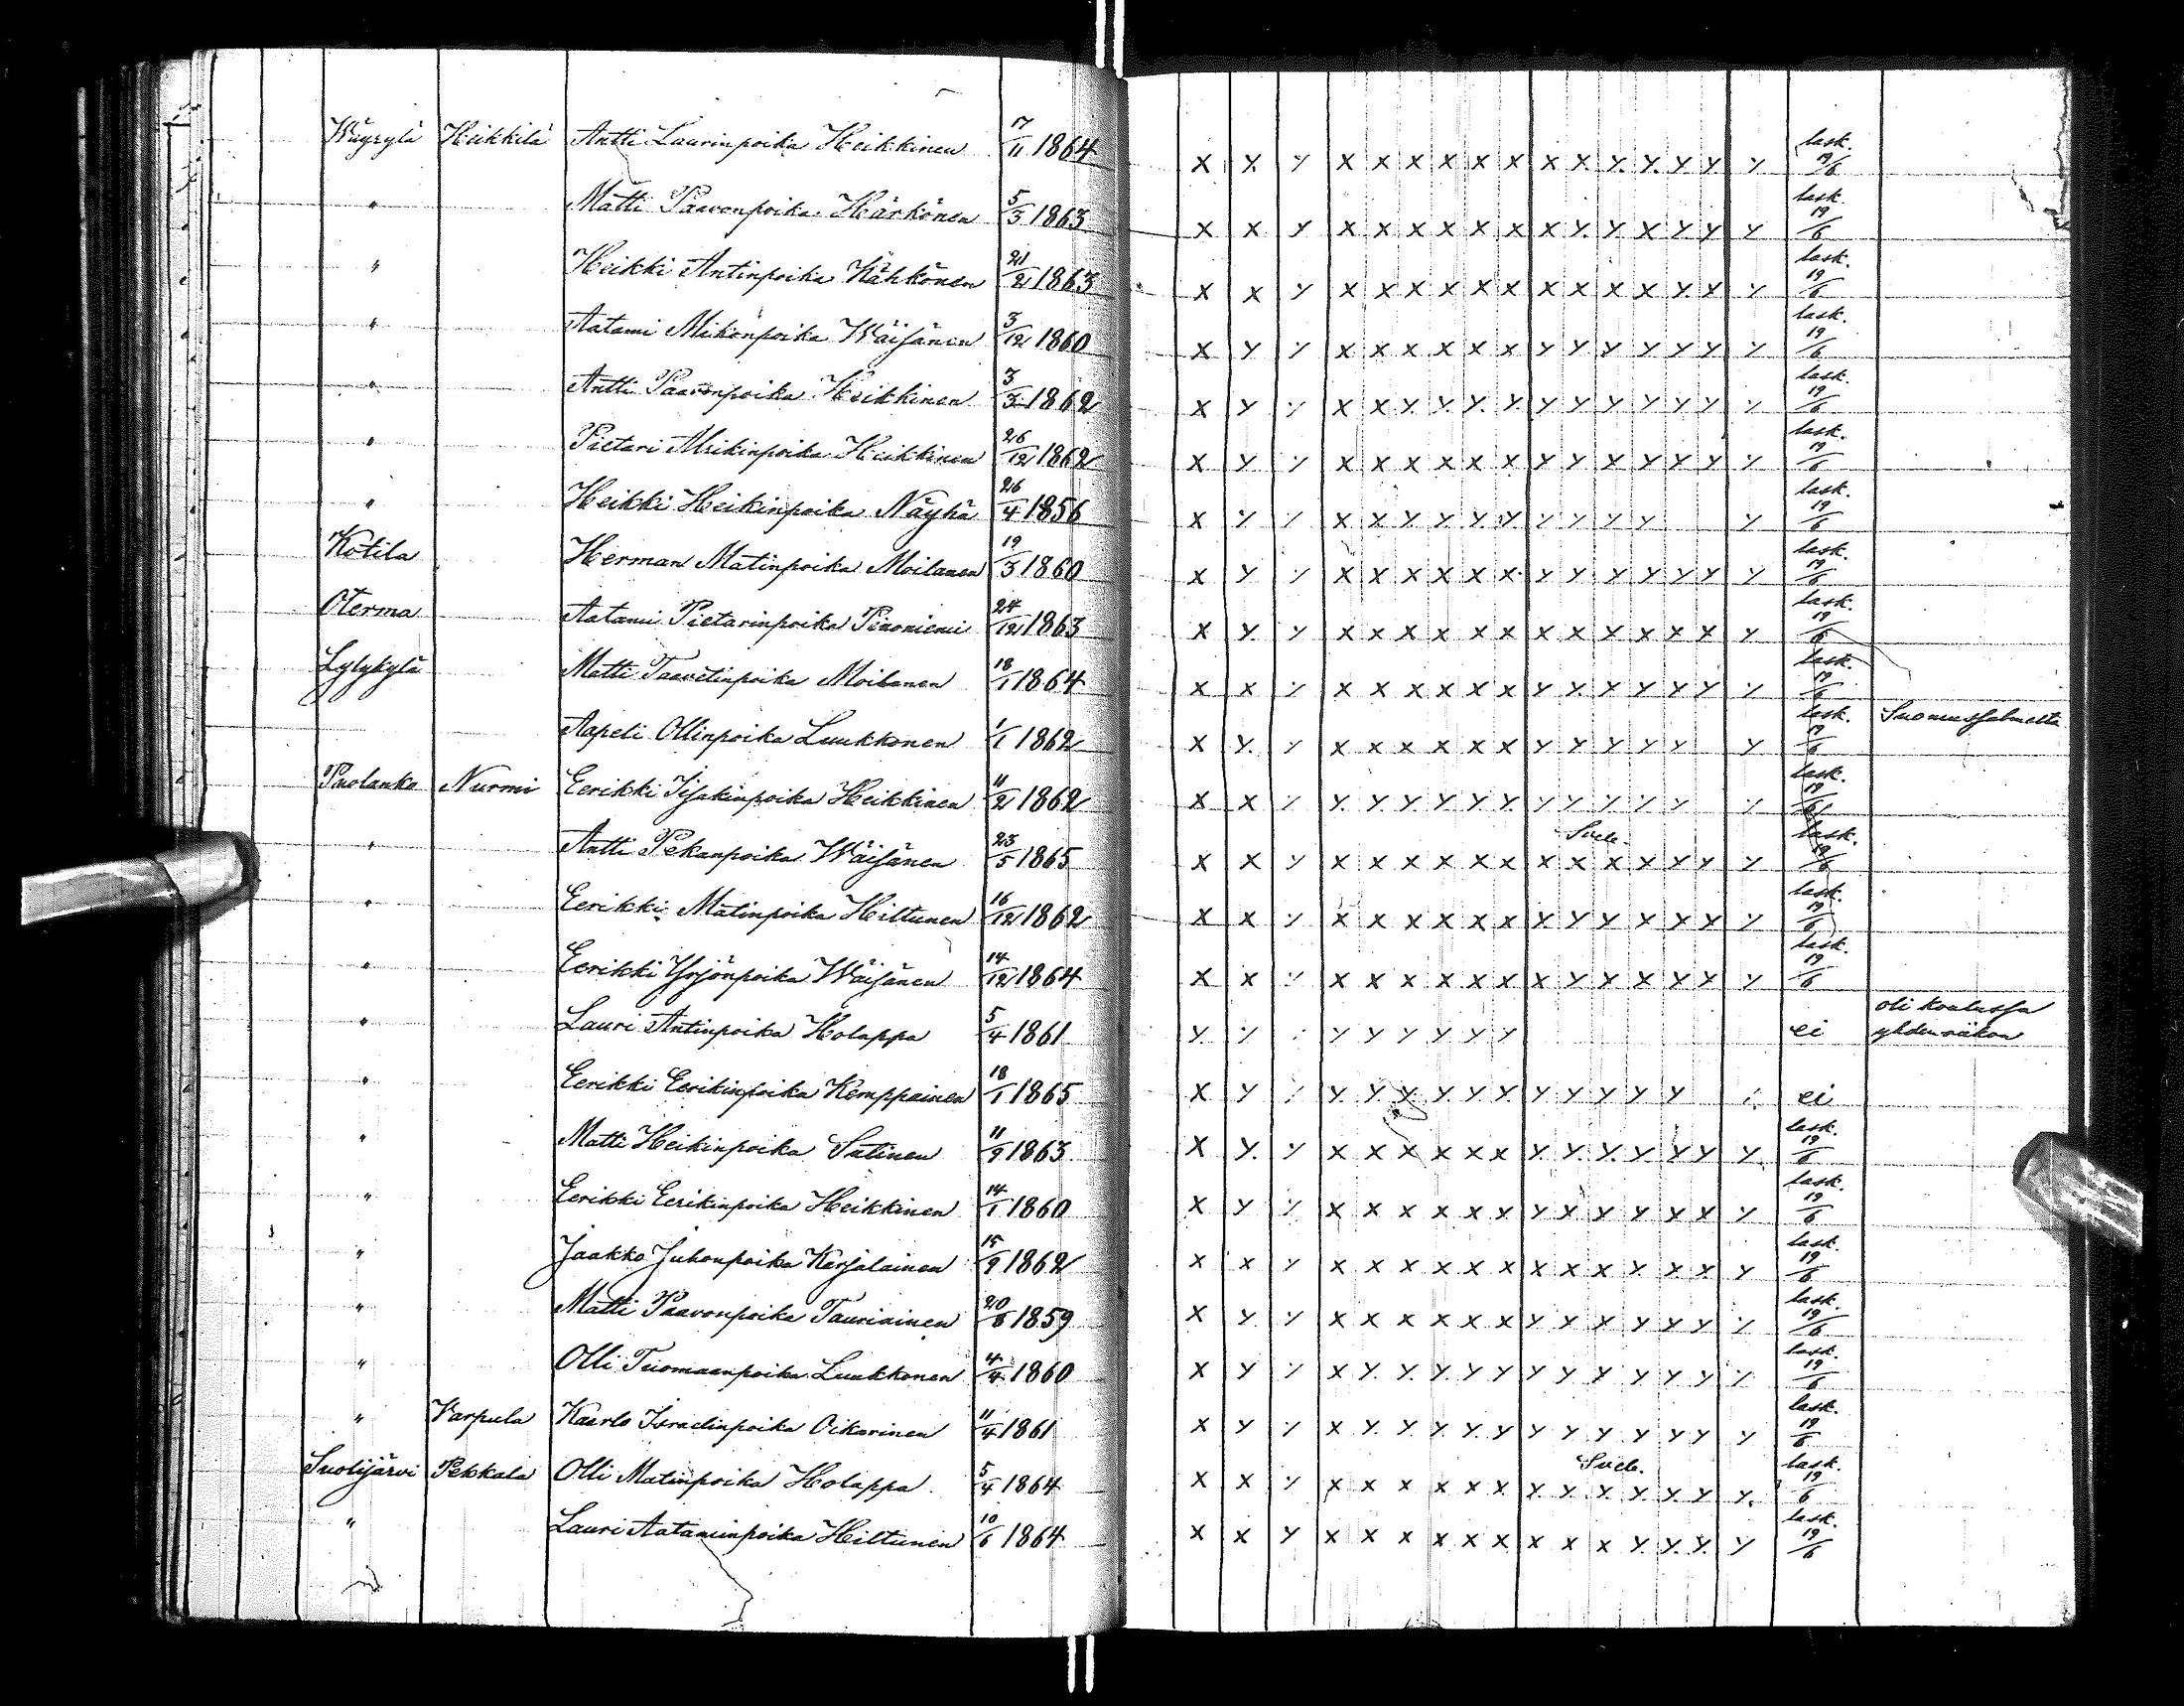 Wäyrylä Heikkilä Antti Laurinpoika Heikkinen 17/11 1864 x x y x x x x x x x x y y y y y lask. 19/6
" Matti Paavonpoika Härkönen 5/3 1863 x x y x x x x x x x y y x y y y lask. 19/6
" Heikki Antinpoika Kähkönen 21/2 1863 x x y x x x x x x x x x x y x y lask. 19/6
" Aatami Mikonpoika Wäisänen 3/12 1860 x y y x x x x x x y y y y y y y lask. 19/6
" Antti Paavonpoika Heikkinen 3/3 1862 x y y x x y y y y y y y y y y y lask. 19/6
" Pietari Mikinpoika Heikkinen 26/12 1862 x y y x x x x x x y y x y y y y lask. 19/6
" Heikki Heikinpoika Näyhä 26/4 1856 x y y x x y y y y y y y y y lask. 19/6
Kotila Herman Matinpoika Moilanen 19/3 1860 x y y x x x x x x y y y y y y y lask. 19/6
Oterma Aatami Pietarinpoika Piironiemi 24/12 1863 x y y x x x x x x x x x x x x y lask. 19/6
Lylykylä Matti Taavetinpoika Moilanen 18/1 1864 x x y x x x x x x y x x y y y y lask. 19/6
Aapeli Ollinpoika Luukkonen 1/1 1862 x y y x x x x x x y y y y y y lask. 19/6 Suomussalmelta
Puolanko Nurmi Eerikki Iisakinpoika Heikkinen 11/2 1862 x x y y y y y y y y y y y y y lask. 19/6
" Antti Pekanpoika Wäisänen 23/5 1865 x x y x x x x x x x x x x y y y lask. 19/6
" Eerikki Matinpoika Hiltunen 16/12 1862 x x y x x x x x x x y y x x y y lask. 19/6
" Eerikki Yrjönpoika Wäisänen 14/12 1864 x x y x x x x x x x y x x x x y lask. 19/6
" Lauri Antinpoika Holappa 5/4 1861 y y y y y y y y ei oli koulussa
yhden viikon
" Eerikki Eerikinpoika Kemppainen 18/1 1865 x y y y y y y y y y y y y y y ei
" Matti Heikinpoika Sutinen 11/9 1863 x y y x x x x x x y y y y y y y lask. 19/6
" Eerikki Eerikinpoika Heikkinen 14/1 1860 x y y x x x x x x y x y y x x y lask. 19/6
" Jaakko Juhonpoika Karjalainen 15/9 1862 x x y x x x x x x x x x y x x y lask. 19/6
" Matti Paavonpoika Tauriainen 20/8 1859 x y y x x x x x x y x x y y y y lask. 19/6
" Olli Tuomaanpoika Luukkonen 4/4 1860 x y y x y y y y y y y y y y y y lask. 19/6
" Varpula Kaarlo Israelinpoika Oikarinen 11/4 1861 x y y x y y y y y y y y y y y y lask. 19/6
Suolijärvi Pekkala Olli Matinpoika Holappa 5/4 1864 x x y x x x x x x y y y y y y y lask. 19/6
" Lauri Aataminpoika Hiltunen 10/6 1864 x x y x x x x x x x x x y y y y lask. 19/6